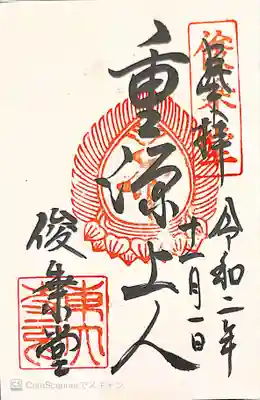 奉拝
令和二年
十一月一日
重源上人
俊乗堂
CamScannerでスキャン